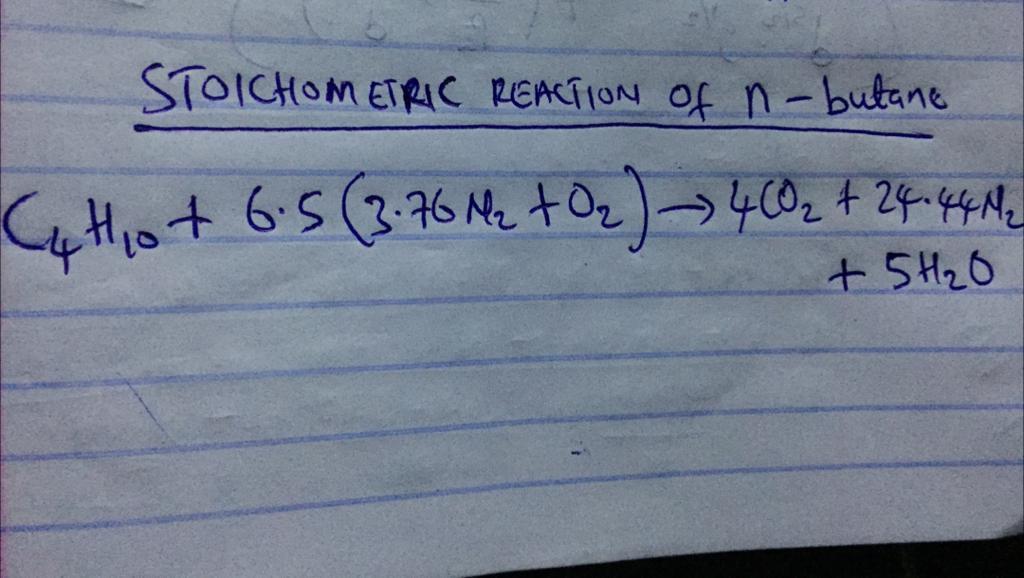 STOICHOMETRIC REACTION Of n-butane
C₄H₁₀ + 6.5 (3.76 N₂ + O₂) → 4CO₂ + 24.44N₂
+ 5H₂O